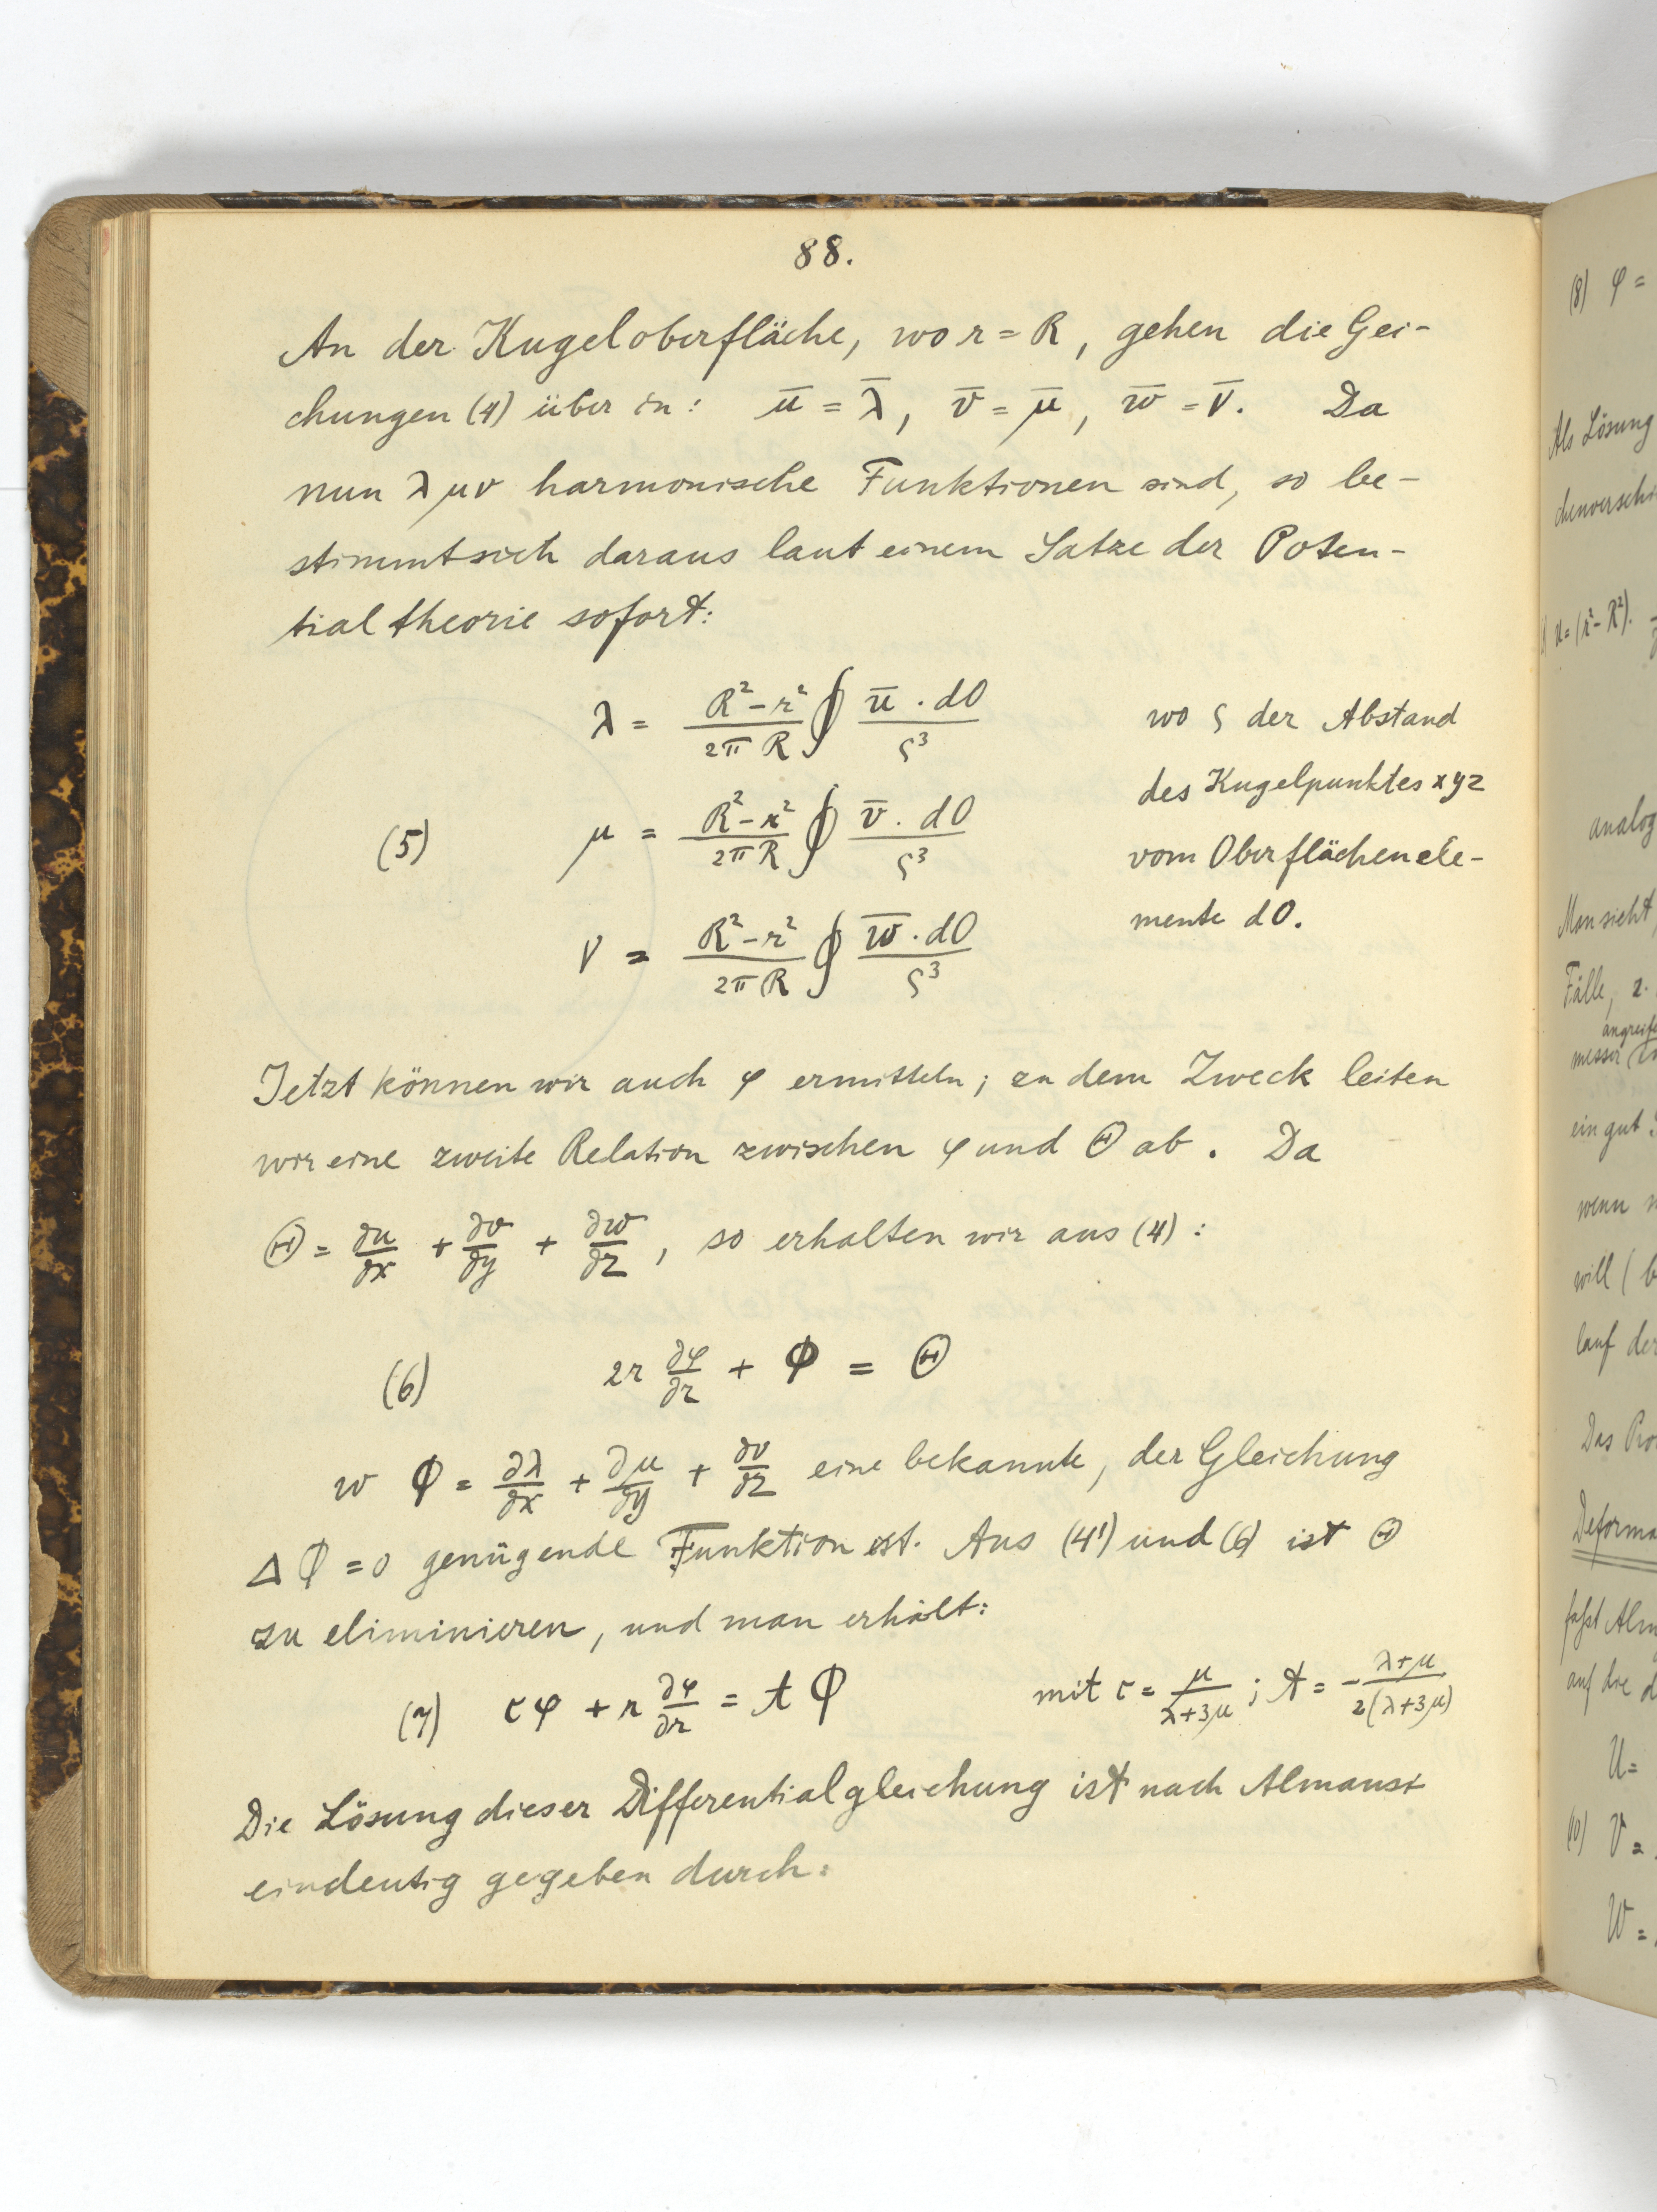 88.
An der Kugeloberfläche, wo r = R, gehen die Glei-
chungen (4) über in: ū = λ̄, v̄ = μ̄, w̄ = ν̄. Da
nun λ μ ν harmonische Funktionen sind, so be-
stimmt sich daraus laut einem Satze der Poten-
tialtheorie sofort:
λ = (R² - r²)/(2π R) ∮ ū . dO / ς³
wo ς der Abstand
des Kugelpunktes xyz
(5) μ = (R² - r²)/(2π R) ∮ v̄ . dO / ς³
vom Oberflächenele-
mente dO.
ν = (R² - r²)/(2π R) ∮ w̄ . dO / ς³
Jetzt können wir auch φ ermitteln; zu dem Zweck leiten
wir eine zweite Relation zwischen φ und Θ ab. Da
Θ = ∂u/∂x + ∂v/∂y + ∂w/∂z, so erhalten wir aus (4):
(6) 2r ∂φ/∂r + Φ = Θ
w Φ = ∂λ/∂x + ∂μ/∂y + ∂ν/∂z eine bekannte, der Gleichung
Δ Φ = 0 genügende Funktion ist. Aus (4') und (6) ist Θ
zu eliminieren, und man erhält:
(7) τφ + r ∂φ/∂r = A Φ mit τ = μ/(λ+3μ); A = - (λ+μ)/(2(λ+3μ))
Die Lösung dieser Differentialgleichung ist nach Almansi
eindeutig gegeben durch:
(8) φ =
Als Lösung
u = (r² - R²).
analog
Man sieht,
Fälle, z.
messer
ein gut
wenn
will (
lauf der
Das
Deforma
auf die
U =
(10) V =
W =